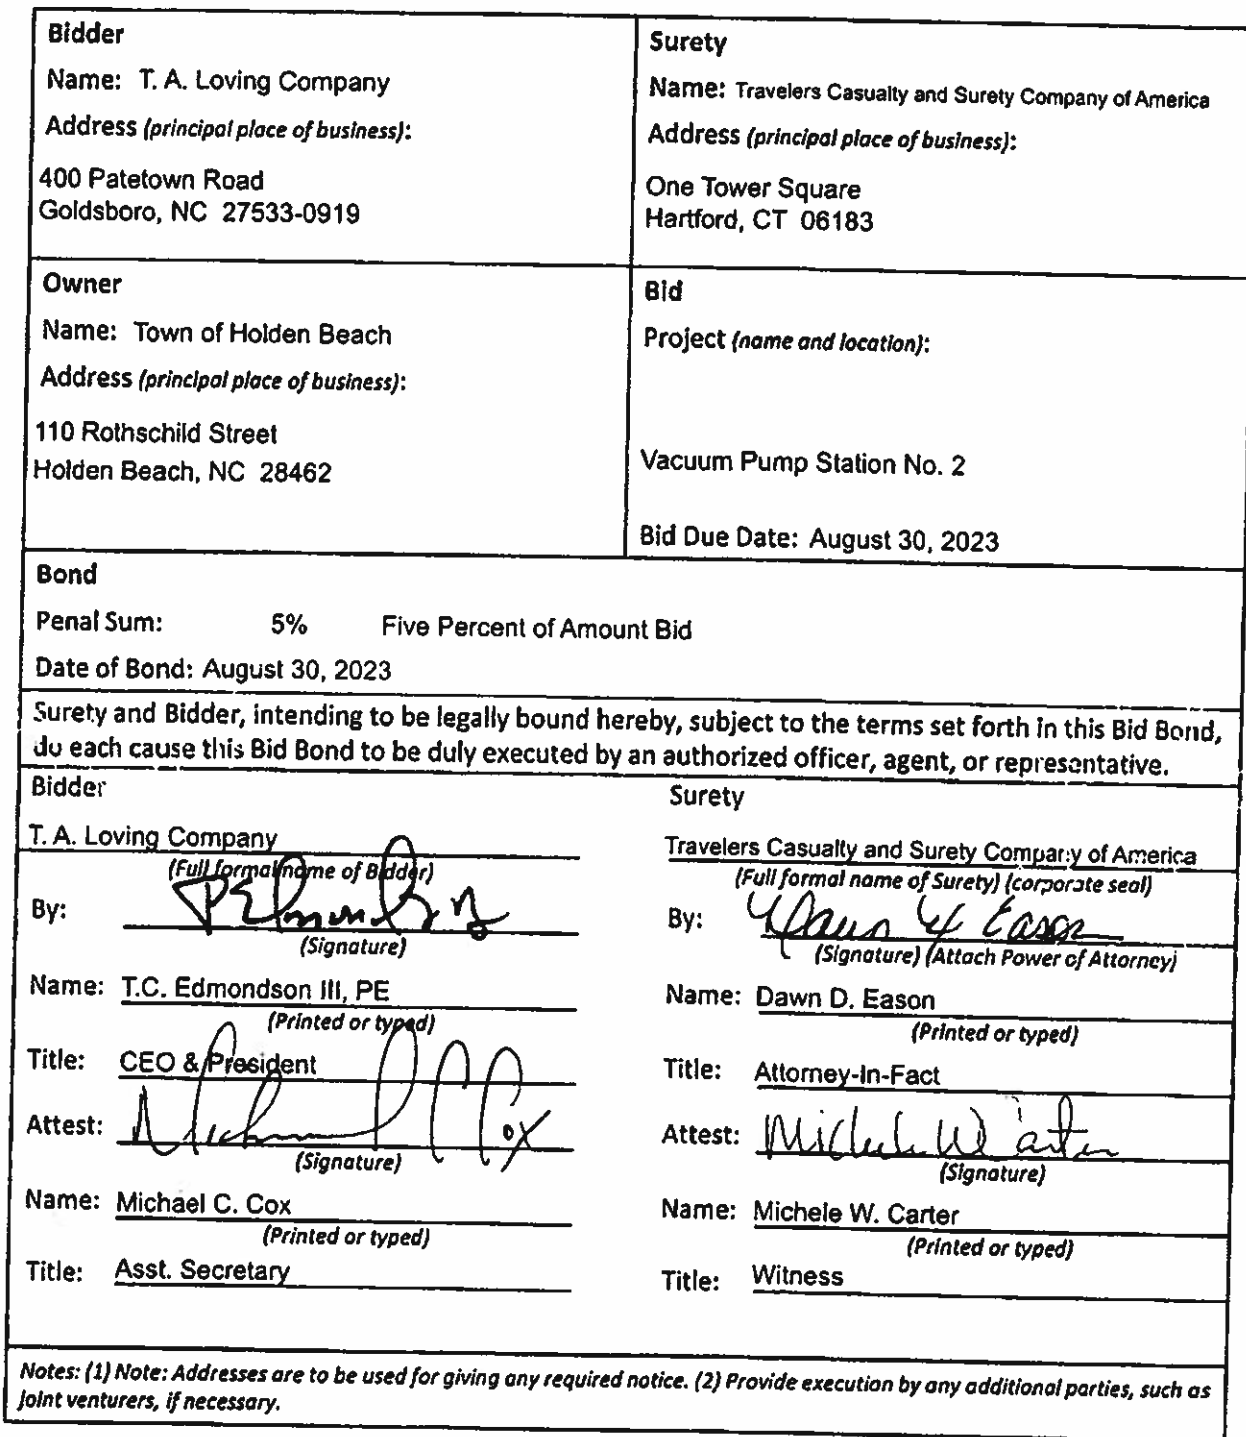 Bidder
Name: T. A. Loving Company
Address (principal place of business):
400 Patetown Road
Goldsboro, NC 27533-0919
Surety
Name: Travelers Casualty and Surety Company of America
Address (principal place of business):
One Tower Square
Hartford, CT 06183
Owner
Name: Town of Holden Beach
Address (principal place of business):
110 Rothschild Street
Holden Beach, NC 28462
Bid
Project (name and location):
Vacuum Pump Station No. 2
Bid Due Date: August 30, 2023
Bond
Penal Sum: 5% Five Percent of Amount Bid
Date of Bond: August 30, 2023
Surety and Bidder, intending to be legally bound hereby, subject to the terms set forth in this Bid Bond,
do each cause this Bid Bond to be duly executed by an authorized officer, agent, or representative.
Bidder
T. A. Loving Company
(Full formal name of Bidder)
By:
(Signature)
Name: T.C. Edmondson III, PE
(Printed or typed)
Title: CEO & President
Attest: Michael C Cox
(Signature)
Name: Michael C. Cox
(Printed or typed)
Title: Asst. Secretary
Surety
Travelers Casualty and Surety Company of America
(Full formal name of Surety) (corporate seal)
By: Dawn D. Eason
(Signature) (Attach Power of Attorney)
Name: Dawn D. Eason
(Printed or typed)
Title: Attorney-In-Fact
Attest: Michele W Carter
(Signature)
Name: Michele W. Carter
(Printed or typed)
Title: Witness
Notes: (1) Note: Addresses are to be used for giving any required notice. (2) Provide execution by any additional parties, such as
joint venturers, if necessary.